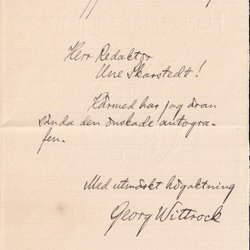 Herr Redaktör
Une Skarstedt!
Härmed har jag äran
sända den önskade autogra-
fen.
Med utmärkt högaktning
Georg Wittrock